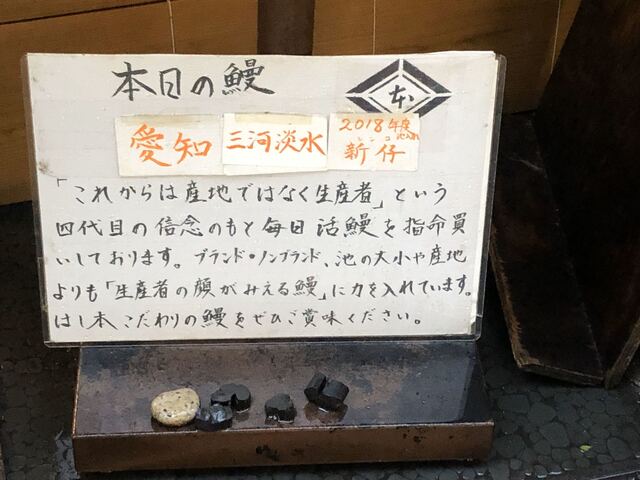 本日の鰻
本
愛知
三河淡水
2018年度
池入れ
シンコ
新仔
「これからは産地ではなく生産者」という
四代目の信念のもと毎日活鰻を指命買
いしております。ブランド・ノンブランド、池の大小や産地
よりも「生産者の顔がみえる鰻」に力を入れています。
はし本こだわりの鰻をぜひご賞味ください。